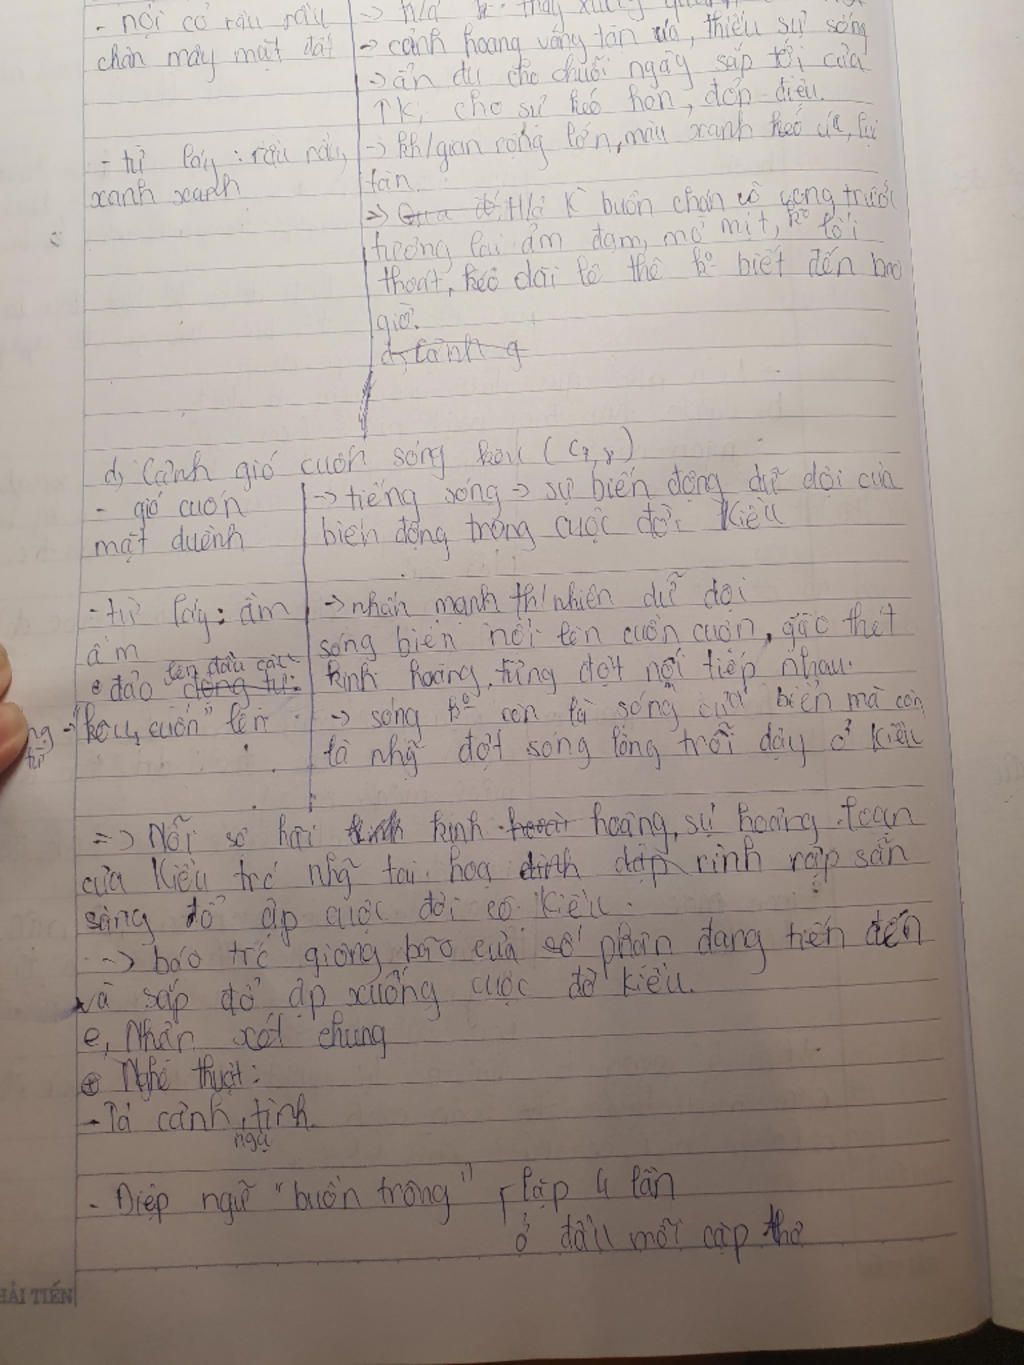 - nội cỏ rầu rầu
chân mây mặt đất
→ cảnh hoang vắng tàn úa, thiếu sự sống
→ ẩn dụ cho chuỗi ngày sắp tới của
TK, cho sự héo hon, đơn điệu.
- từ láy: rầu rầu,
xanh xanh
→ kh/gian rộng lớn, màu xanh héo úa, lụi
tàn.
tương lai ảm đạm, mờ mịt, ko lối
thoát, kéo dài lê thê ko biết đến bao
giờ.
d, Cảnh g
d, Cảnh gió cuốn sóng kêu (C7,8)
- gió cuốn
mặt duềnh
→ tiếng sóng → sự biến động dữ dội của
biến động trong cuộc đời Kiều
- từ láy: ầm
ầm
• đảo động từ: lên đầu câu
"kêu, cuốn" lên
→ nhấn mạnh th/nhiên dữ dội
sóng biển nổi lên cuồn cuộn, gào thét
kinh hoàng, từng đợt nối tiếp nhau.
→ sóng ko còn là sóng của biển mà còn
là nhữ đợt sóng lòng trỗi dậy ở Kiều
=> Nỗi sợ hãi kinh hoàng, sự hoảng loạn
của Kiều trc nhữ tai hoạ rình rập sẵn
sàng đổ ập cuộc đời cô Kiều.
→ báo trc giông bão của số phận đang tiến đến
và sắp đổ ập xuống cuộc đời Kiều.
e, Nhận xét chung
⊕ Nghệ thuật:
- Tả cảnh ngụ tình.
- Điệp ngữ "buồn trông", lặp 4 lần
ở đầu mỗi cặp thơ
HẢI TIẾN